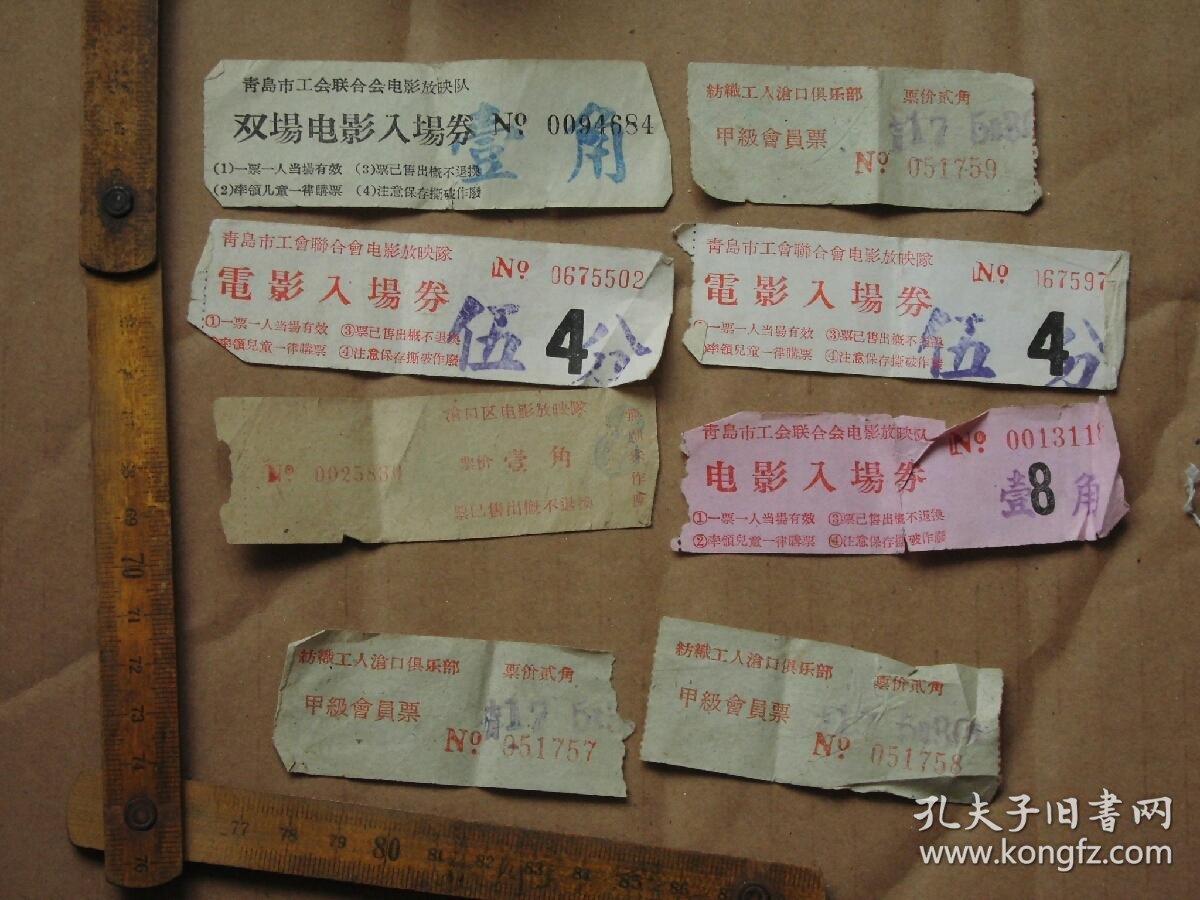 青島市工会联合会电影放映队
双場电影入場券 № 0094684
壹角
(1)一票一人当場有效 (3)票已售出概不退換
(2)率領儿童一律購票 (4)注意保存撕破作廢
紡織工人滄口俱乐部 票价貳角
甲級會員票
№ 051759
青島市工會聯合會电影放映隊
№ 0675502
電影入場券
伍分
4
①一票一人当場有效 ③票已售出概不退換
率領兒童一律購票 ④注意保存撕破作廢
青島市工會聯合會电影放映隊
№ 067597
電影入場券
伍分
4
一票一人当場有效 ③票已售出概不退換
率領兒童一律購票 ④注意保存撕破作廢
滄口区电影放映隊
№ 002583
票价 壹角
票已售出概不退換
青島市工会联合会电影放映队
№ 001311
电影入場券
壹角
8
①一票一人当場有效 ③票已售出概不退換
②率領兒童一律購票 ④注意保存撕破作廢
紡織工人滄口俱乐部 票价貳角
甲級會員票
№ 051757
紡織工人滄口俱乐部 票价貳角
甲級會員票
№ 051758
69
70
71
72
73
74
76
77 78 79 80 81 82 83 84 85 86
孔夫子旧書网
www.kongfz.com